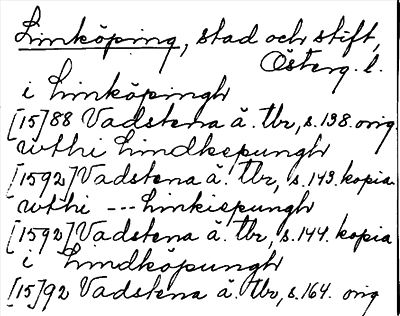 Linköping, stad och stift,
Österg. l.
i Linköpingh
[15]88 Vadstena ä. tbr, s. 138. orig.
wthi Lindkepungh
[1592] Vadstena ä. tbr, s. 143. kopia.
wthi --- Linkiepungh
[1592] Vadstena ä. tbr, s. 144. kopia
i Lindköpungh
[15]92 Vadstena ä. tbr, s. 164. orig